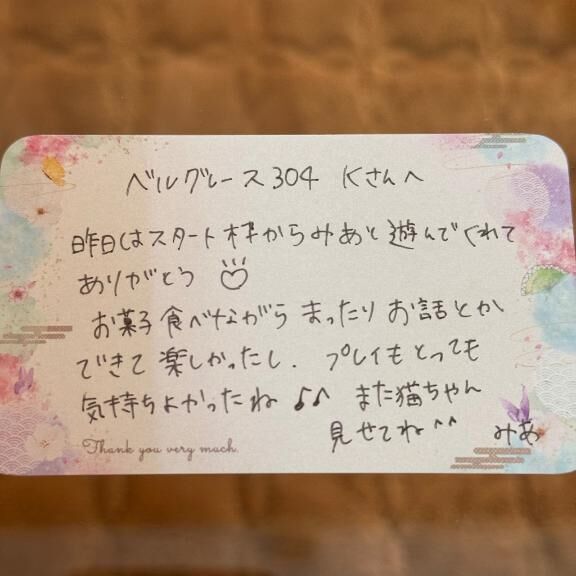 ベルグレース304 Kさんへ
昨日はスタート枠からみあと遊んでくれて
ありがとう♡
お菓子食べながらまったりお話とか
できて楽しかったし、プレイもとっても
気持ちよかったね♪♪ また猫ちゃん
見せてね^^ みあ
Thank you very much.